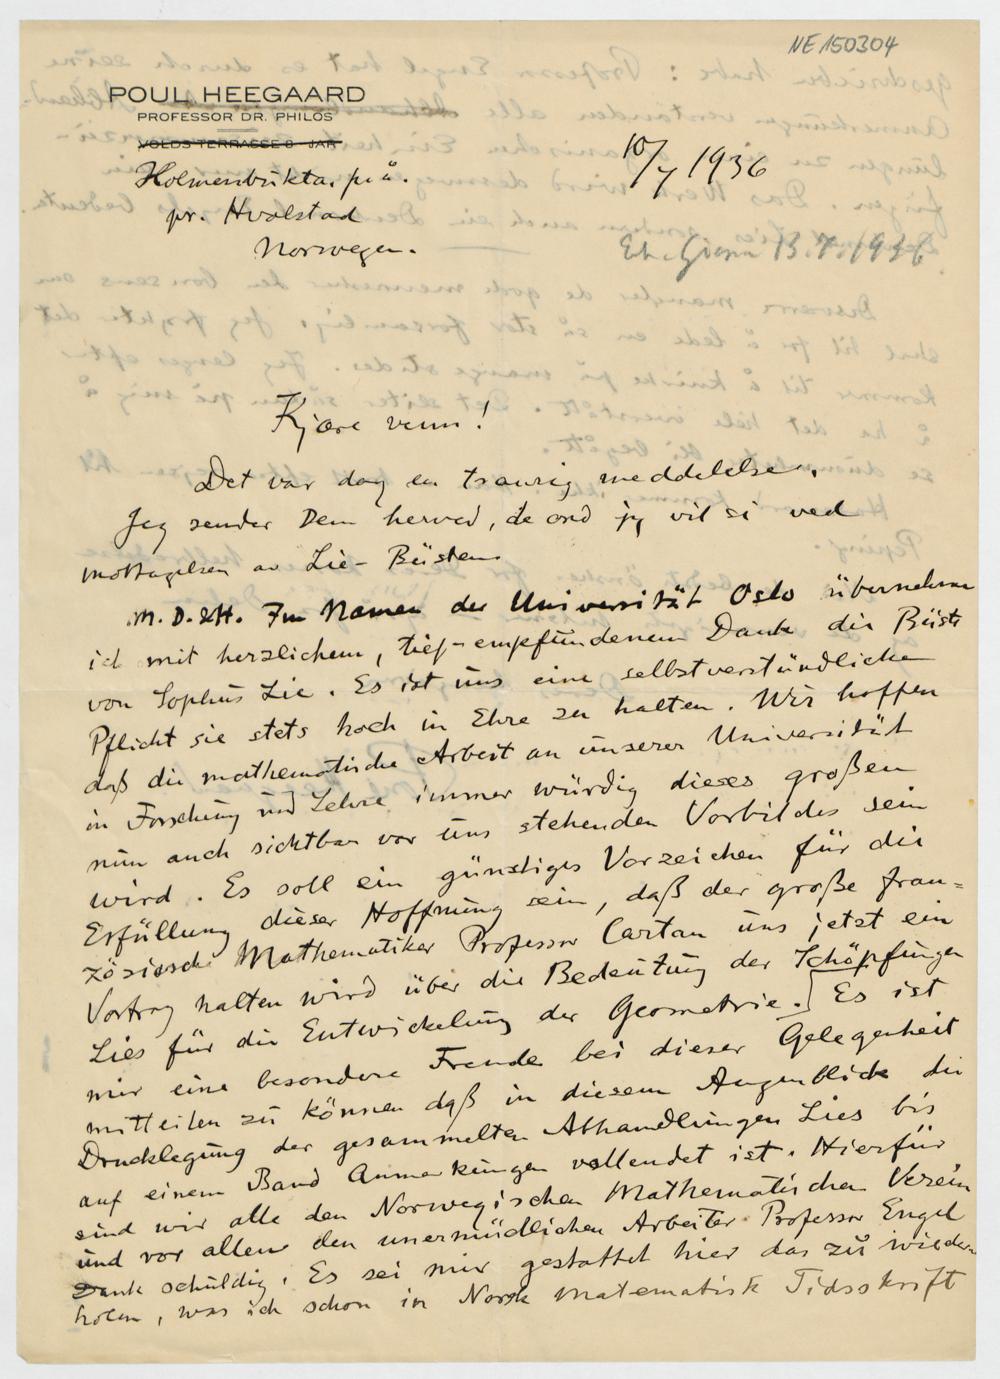 NE 150304
POUL HEEGAARD
PROFESSOR DR. PHILOS
VOLDS TERRASSE 8 JAR
Holmenbukta, p.å.
pr. Hvalstad
Norwegen.
10/7 1936
Eh. Giessen 13.7.1936
Kjære venn!
Det var dog en traurig meddelelse.
Jeg sender Dem herved, de ord jeg vil si ved
mottagelsen av Lie-Büsten.
M.D.&H. Im Namen der Universität Oslo übernehme
ich mit herzlichem, tief-empfundenem Dank die Büste
von Sophus Lie. Es ist uns eine selbstverständliche
Pflicht sie stets hoch in Ehre zu halten. Wir hoffen
daß die mathematische Arbeit an unserer Universität
in Forschung und Lehre immer würdig dieses großen
nun auch sichtbar vor uns stehenden Vorbildes sein
wird. Es soll ein günstiges Vorzeichen für die
Erfüllung dieser Hoffnung sein, daß der große fran=
zösische Mathematiker Professor Cartan uns jetzt ein
Vortrag halten wird über die Bedeutung der Schöpfungen
Lies für die Entwickelung der Geometrie.] Es ist
mir eine besondere Freude bei dieser Gelegenheit
mitteilen zu können daß in diesem Augenblick die
Drucklegung der gesammelten Abhandlungen Lies bis
auf einem Band Anmerkungen vollendet ist. Hierfür
sind wir alle den Norwegischen Mathematischen Verein
und vor allem den unermüdlichen Arbeiter Professor Engel
Dank schuldig. Es sei mir gestattet hier das zu wieder
holen, was ich schon in Norsk Matematisk Tidsskrift